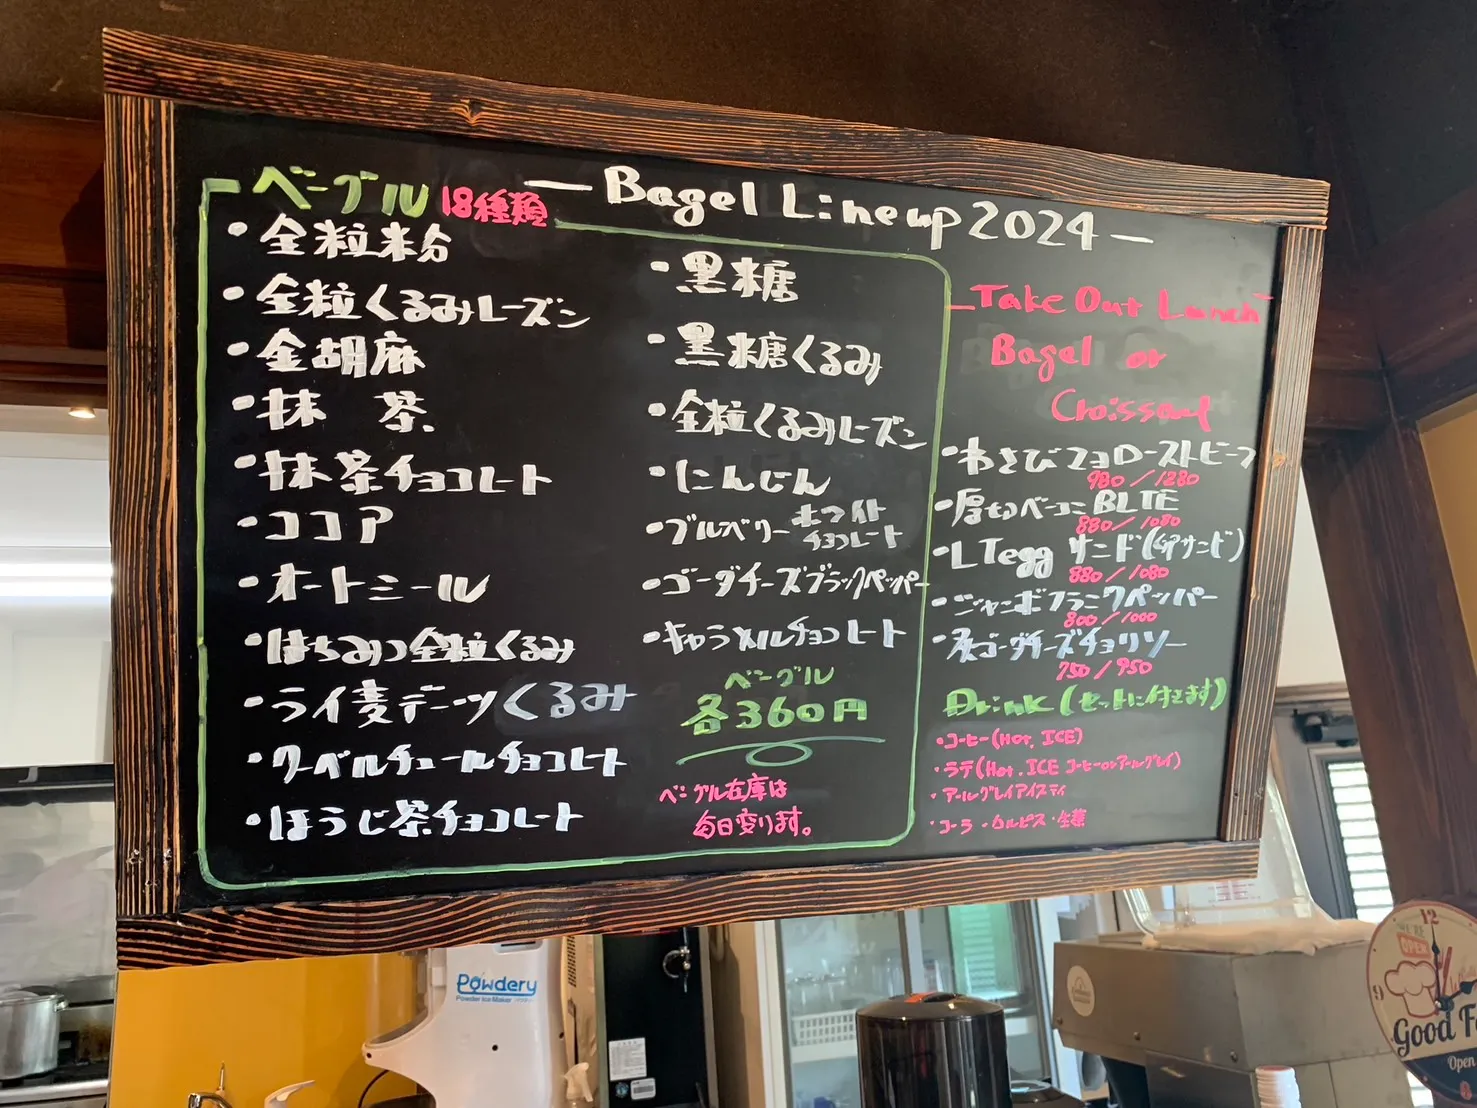 ベーグル 18種類
— Bagel Lineup 2024 —
・全粒粉
・全粒くるみレーズン
・金胡麻
・抹茶
・抹茶チョコレート
・ココア
・オートミール
・はちみつ全粒くるみ
・ライ麦デーツくるみ
・クーベルチュールチョコレート
・ほうじ茶チョコレート
・黒糖
・黒糖くるみ
・全粒くるみレーズン
・にんじん
・ブルーベリーホワイトチョコレート
・ゴーダチーズブラックペッパー
・キャラメルチョコレート
ベーグル
各360円
ベーグル在庫は
毎日変ります。
Take Out Lunch
Bagel or
Croissant
・わさびマヨローストビーフ
980/1280
・厚切ベーコンBLTE
880/1080
・LTegg サンド(卵サンド)
880/1080
・ジャンボフランクペッパー
800/1000
ゴーダチーズチョリソー
750/950
Drink (セットに付きます)
・コーヒー(Hot, ICE)
・ラテ(Hot, ICE コーヒーorアールグレイ)
・アールグレイアイスティ
・コーラ・カルピス・生茶
Powdery
Powder Ice Maker
WE'RE
OPEN
12
9
Good F
Open